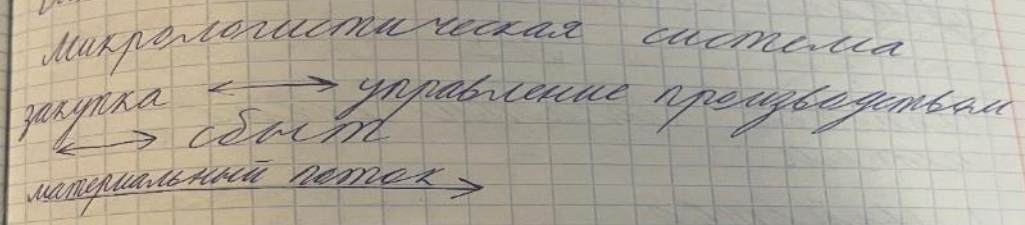 Микрологистическая система
закупка ⟷ управление производством
⟷ сбыт
материальный поток →